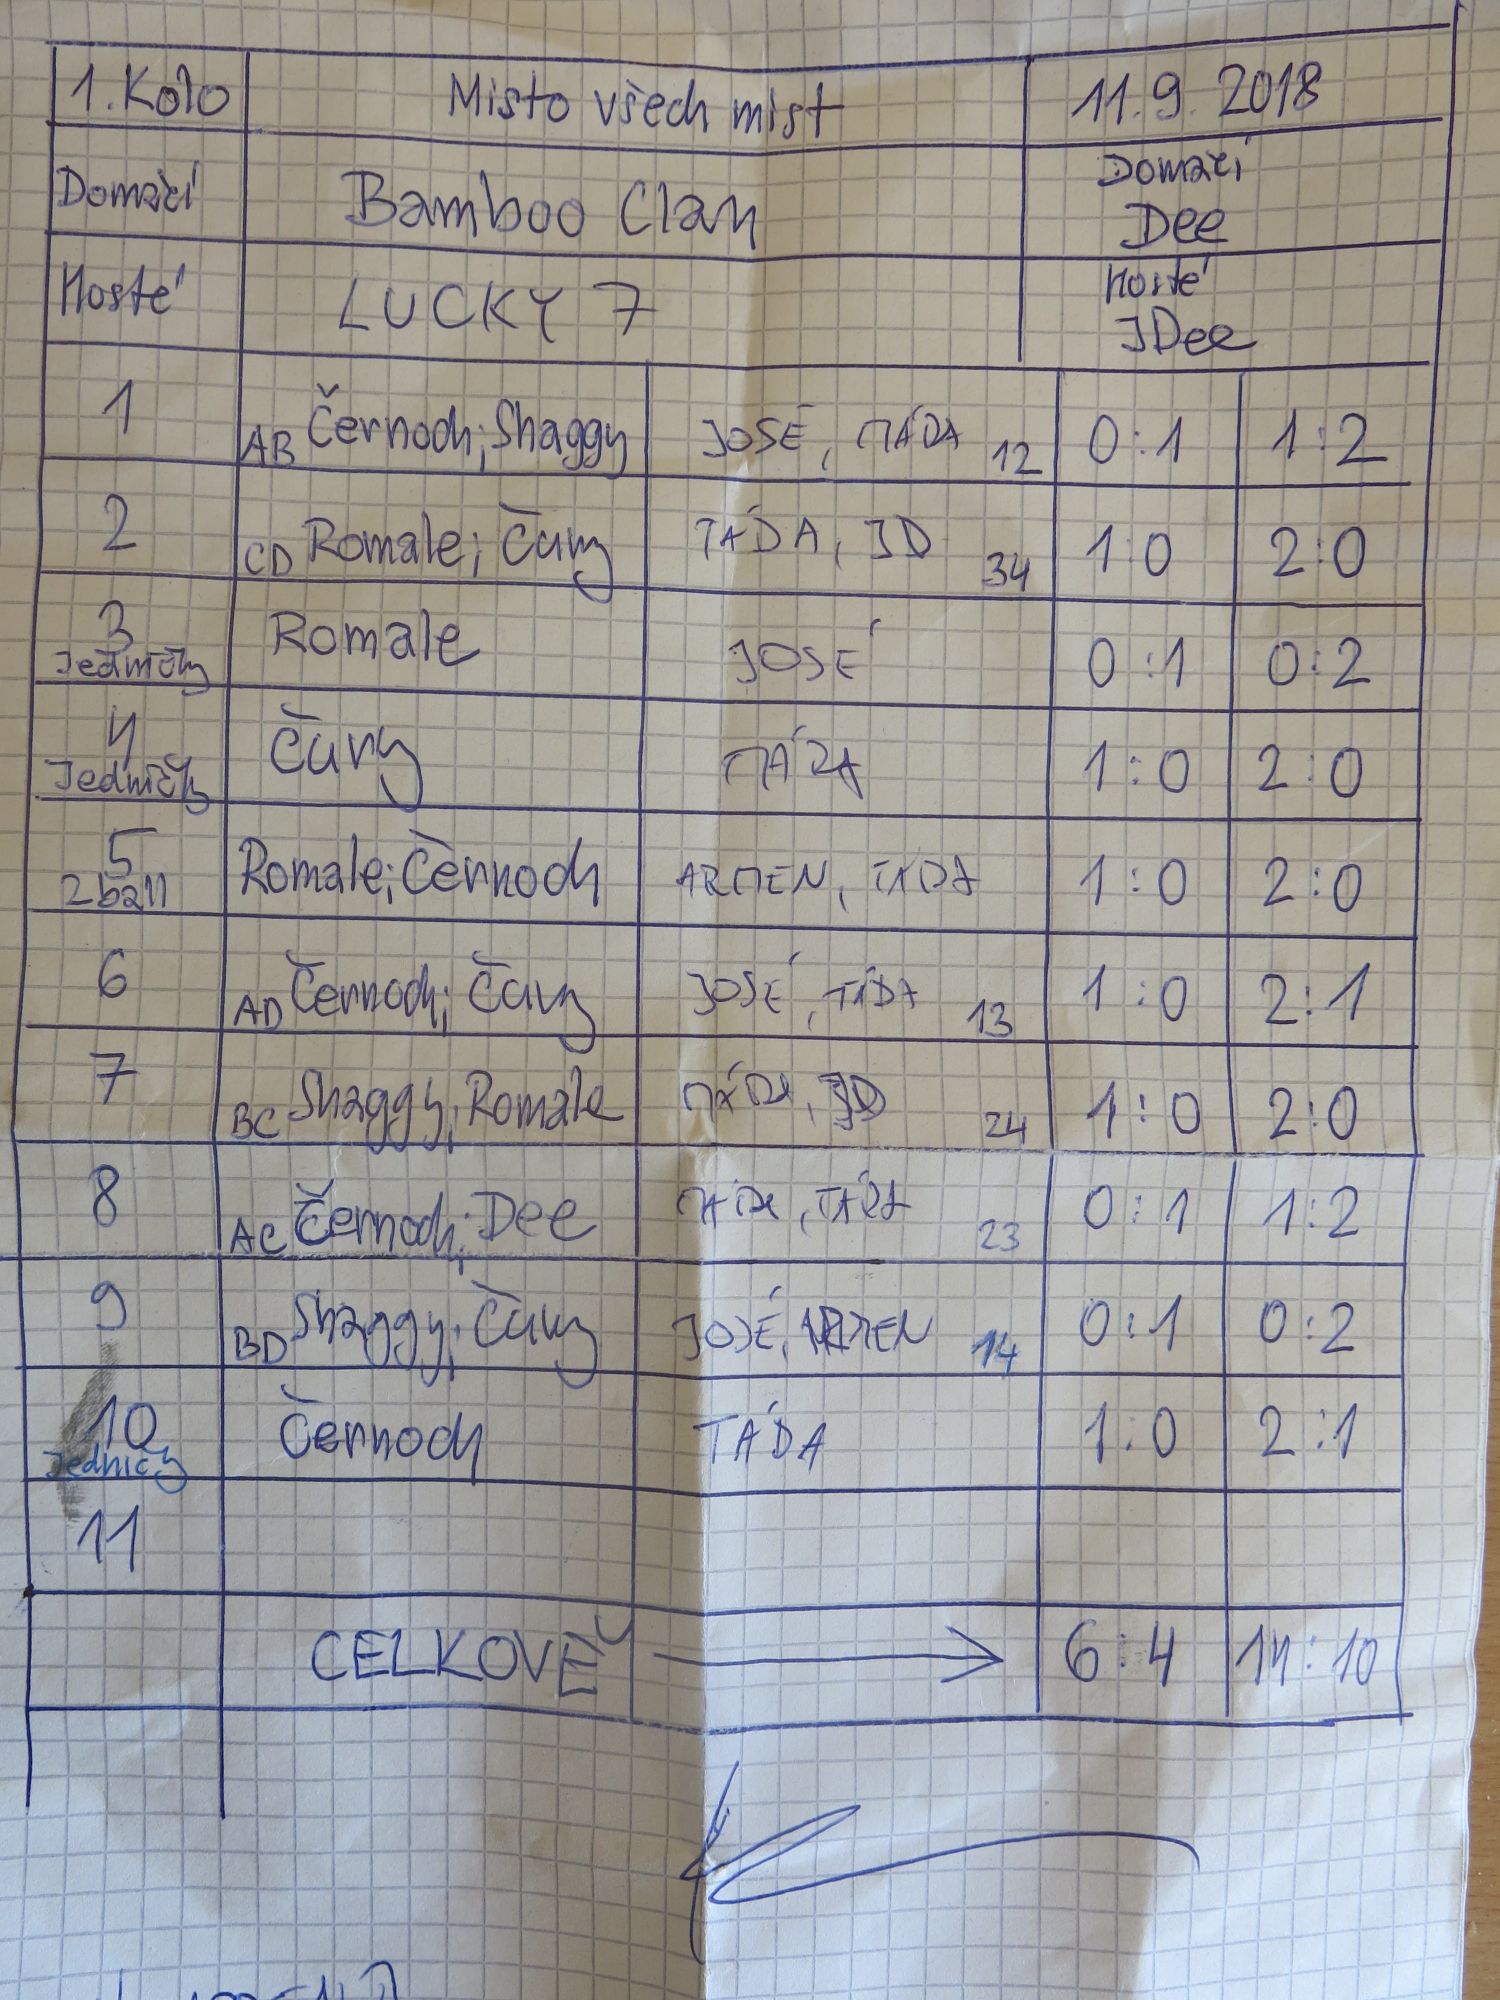 1. Kolo Misto všech mist 11.9. 2018
Domačí Bamboo Clan Domačí Dee
Hosté LUCKY 7 Hosté JDee
1 AB Černoch; Shaggy JOSÉ, MÁDA 12 0:1 1:2
2 CD Romale; Čury TÁDA, JD 34 1:0 2:0
3 Jedničky Romale JOSÉ 0:1 0:2
4 Jedničky Čury MÁDA 1:0 2:0
5 2ball Romale; Černoch ARMEN, TÁDA 1:0 2:0
6 AD Černoch; Čury JOSÉ, TÁDA 13 1:0 2:1
7 BC Shaggy; Romale MÁDA, JD 24 1:0 2:0
8 AC Černoch; Dee MÁDA, TÁDA 23 0:1 1:2
9 BD Shaggy; Čury JOSÉ, ARMEN 14 0:1 0:2
10 Jedničky Černoch TÁDA 1:0 2:1
11
CELKOVĚ 6:4 14:10